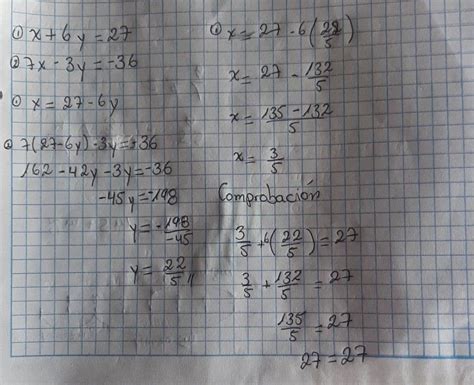 ① x + 6y = 27
② 7x - 3y = -36
① x = 27 - 6y
② 7(27-6y) - 3y = -36
162 - 42y - 3y = -36
-45y = -198
y = -198/-45
y = 22/5 //
① x = 27 - 6(22/5)
x = 27 - 132/5
x = 135 - 132/5
x = 3/5
Comprobación
3/5 + 6(22/5) = 27
3/5 + 132/5 = 27
135/5 = 27
27 = 27